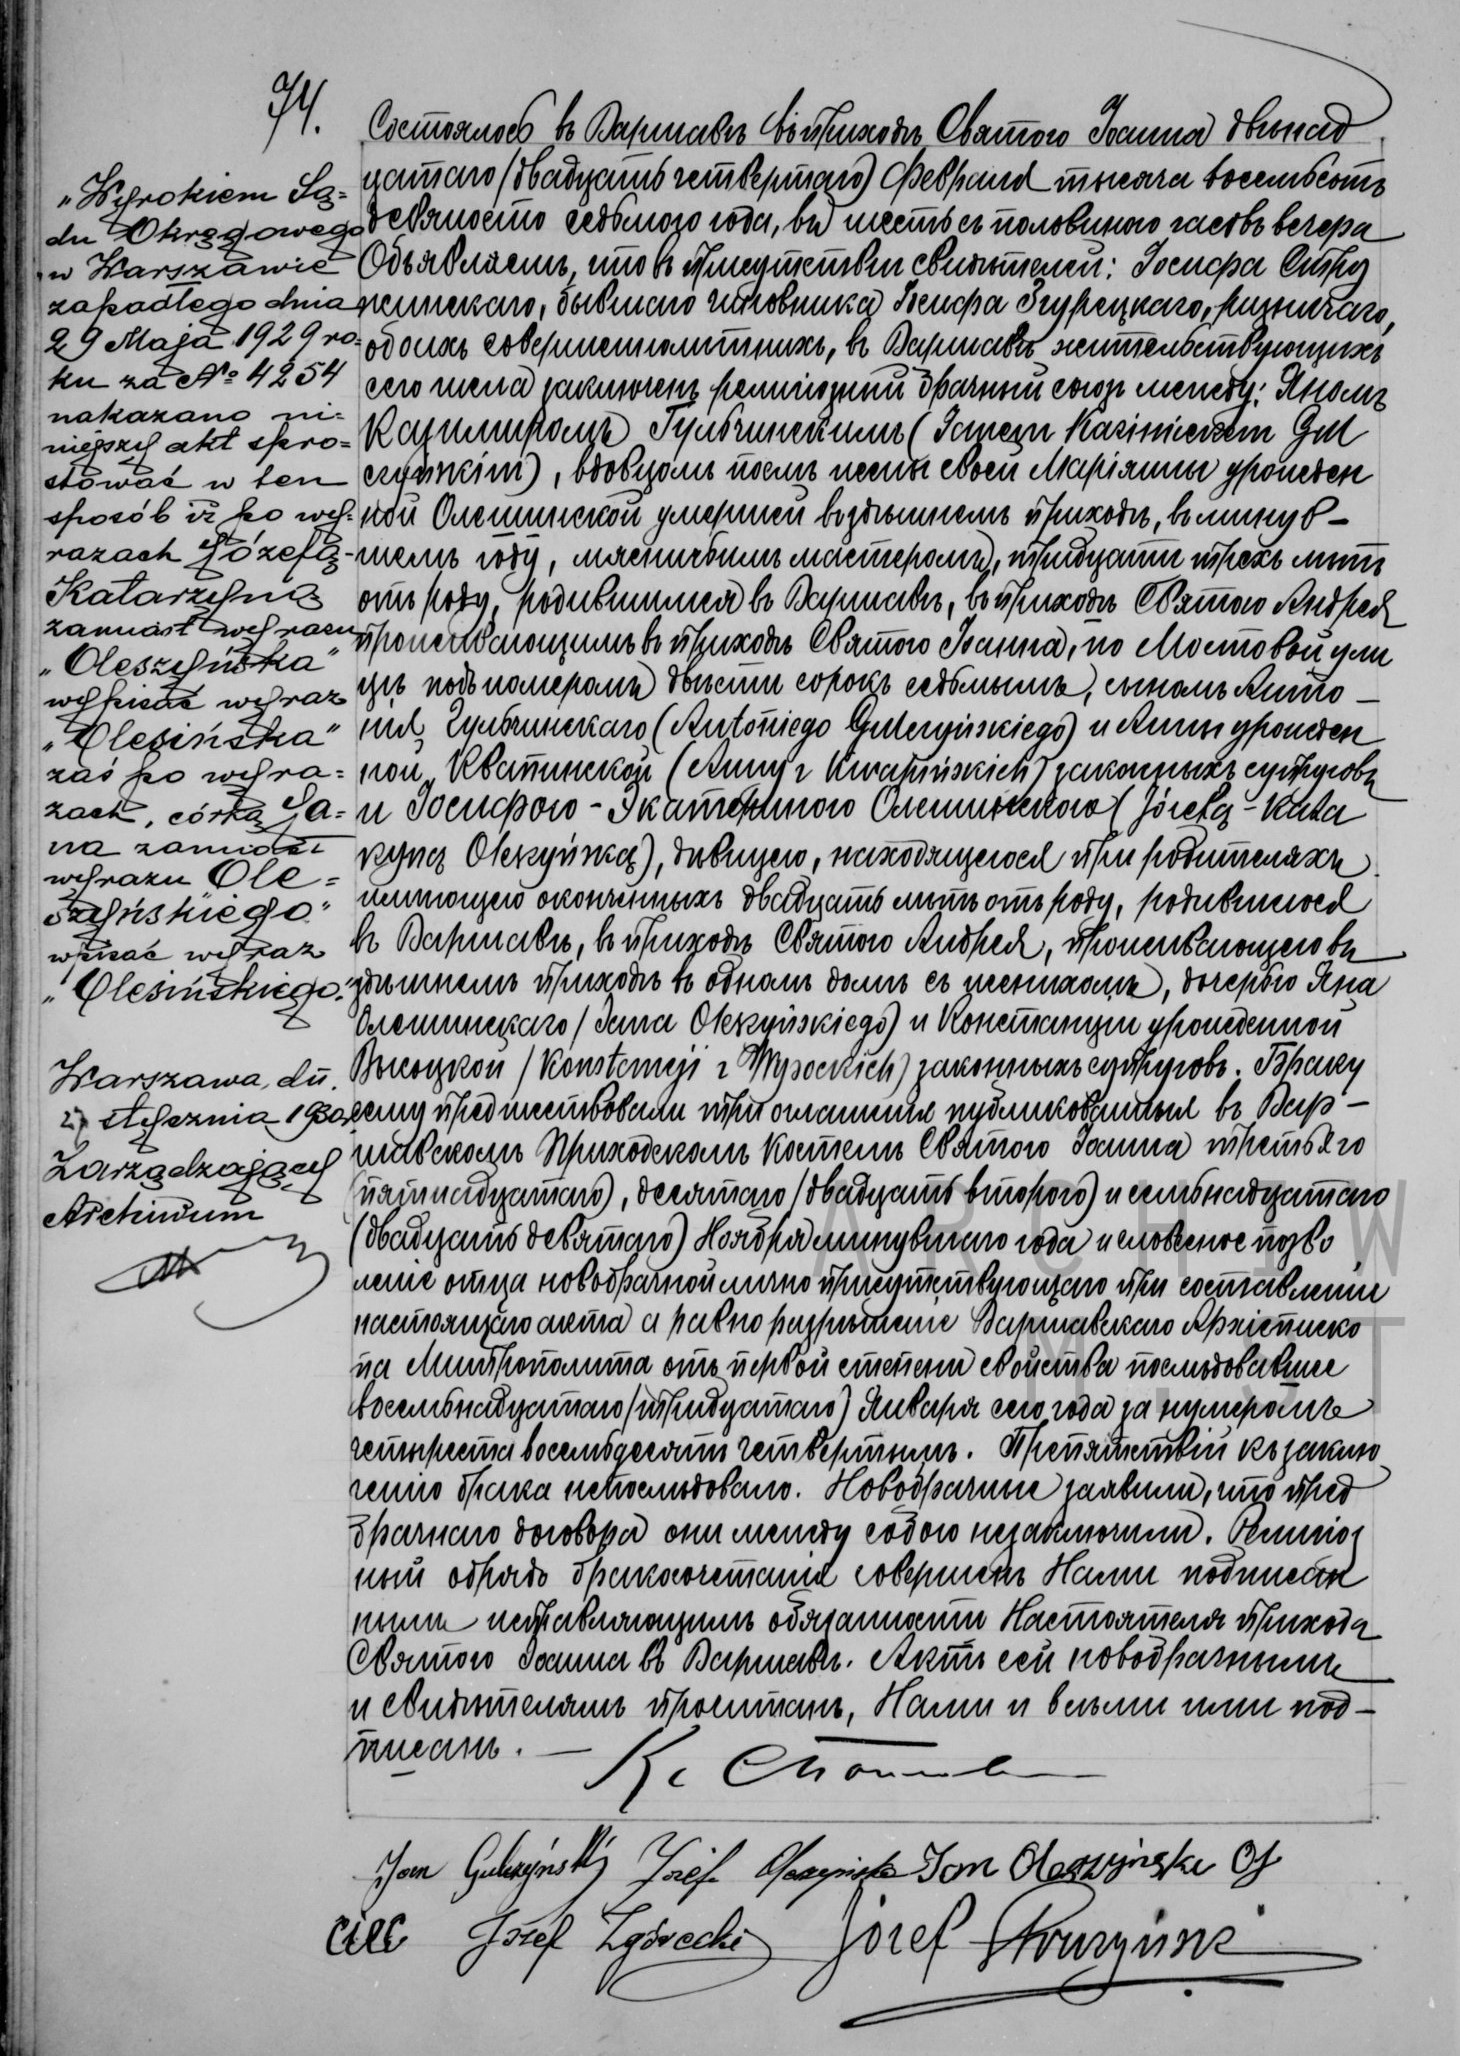 74.
„Wyrokiem Są=
du Okręgowego
w Warszawie
zapadłego dnia
29 Maja 1929 ro=
ku za № 4254
nakazano ni=
niejszy akt spro=
stować w ten
sposób iż po wy=
razach Józefą-
Katarzyną
zamiast wyrazu
„Oleszyńska"
wpisać wyraz
„Olesińska"
zaś po wyra=
zach, córką Ja=
na zamiast
wyrazu Ole=
szyńskiego"
wpisać wyraz
„Olesińskiego."
Warszawa, dn.
27 stycznia 1930
Zarządzający
Archiwum
Состоялось въ Варшавѣ въ приходѣ Святого Іоанна двѣнад
цатаго /двадцать четвертаго/ Февраля тысяча восемьсотъ
девяносто седьмого года, въ шесть съ половиною часовъ вечера
Объявляемъ, что въ присутствіи свидѣтелей: Іосифа Стру
жинскаго, бывшаго чиновника Іосифа Згурецкаго, рѣзничаго,
обоихъ совершеннолѣтнихъ, въ Варшавѣ жительствующихъ
сего числа заключенъ религіозный брачный союзъ между: Яномъ
Казимиромъ Гульчинскимъ (Janem Kazimierzem Gul
czyńskim), вдовцомъ послѣ жены своей Маріянны урожден
ной Олешинской умершей въ здѣшнемъ приходѣ, въ минув-
шемъ году, мясничьимъ мастеромъ, тридцати трехъ лѣтъ
отъ роду, родившимся въ Варшавѣ, въ приходѣ Святого Андрея
проживающимъ въ приходѣ Святого Іоанна, по Мостовой ули
цѣ подъ номеромъ двѣсти сорокъ седьмымъ, сыномъ Анто-
нія Гульчинскаго (Antoniego Gulczyńskiego) и Анны урожден
ной Квапинской (Anny z Kwapińskich) законныхъ супруговъ
и Іосифою-Экатериною Олешинскою (Józefą-Kata
rzyną Oleszyńską), дѣвицею, находящеюся при родителяхъ
имѣющею оконченныхъ двадцать лѣтъ отъ роду, родившеюся
въ Варшавѣ, въ приходѣ Святого Андрея, проживающею въ
здѣшнемъ приходѣ въ одномъ домѣ съ женихомъ, дочерью Яна
Олешинскаго /Jana Oleszyńskiego/ и Констанціи урожденной
Высоцкой /Konstancji z Wysockich/ законныхъ супруговъ. Браку
сему предшествовали три оглашенія публикованныя въ Вар-
шавскомъ Приходскомъ Костелѣ Святого Іоанна третьяго
(пятнадцатаго), десятаго /двадцать второго/ и семьнадцатаго
(двадцать девятаго) Ноября минувшаго года и словесное позво
леніе отца новобрачной лично присутствующаго при составленіи
настоящаго акта а равно разрѣшеніе Варшавскаго Архіеписко
па Митрополита отъ первой степени свойства послѣдовавшее
восемьнадцатаго /тридцатаго/ Января сего года за нумеромъ
четыреста восемьдесятъ четвертымъ. Препятствій къ заклю
ченію брака непослѣдовало. Новобрачные заявили, что пред
брачнаго договора они между собою незаключили. Религіоз
ный обрядъ бракосочетанія совершенъ Нами подписан
нымъ исправляющимъ обязанности Настоятеля прихода
Святого Іоанна въ Варшавѣ. Актъ сей новобрачнымъ
и свидѣтелямъ прочитанъ, Нами и всѣми ими под-
писанъ. —
Jan Gulczyński Józef. Oleszyńska Jan Oleszyńske Oj
ciec Józef Zgórecki Józef Strużyński
ARCHIW
M.ST